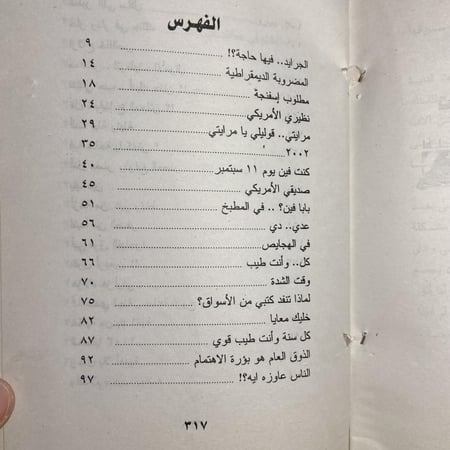 الفهرس
الجرايد.. فيها حاجة؟! ٩
المضروبة الديمقراطية ١٤
مطلوب إسفنجة ١٨
نظيري الأمريكي ٢٤
مرايتي.. قوليلي يا مرايتي ٢٩
٢٠٠٢ ٣٥
كنت فين يوم ١١ سبتمبر ٤٠
صديقي الأمريكي ٤٥
بابا فين؟ .. في المطبخ ٥١
عدي.. دي ٥٦
في الهجايص ٦١
كل.. وأنت طيب ٦٦
وقت الشدة ٧٠
لماذا تنفد كتبي من الأسواق؟ ٧٥
خليك معايا ٨٢
كل سنة وأنت طيب قوي ٨٧
الذوق العام هو بؤرة الاهتمام ٩٢
الناس عاوزه ايه؟! ٩٧
٣١٧